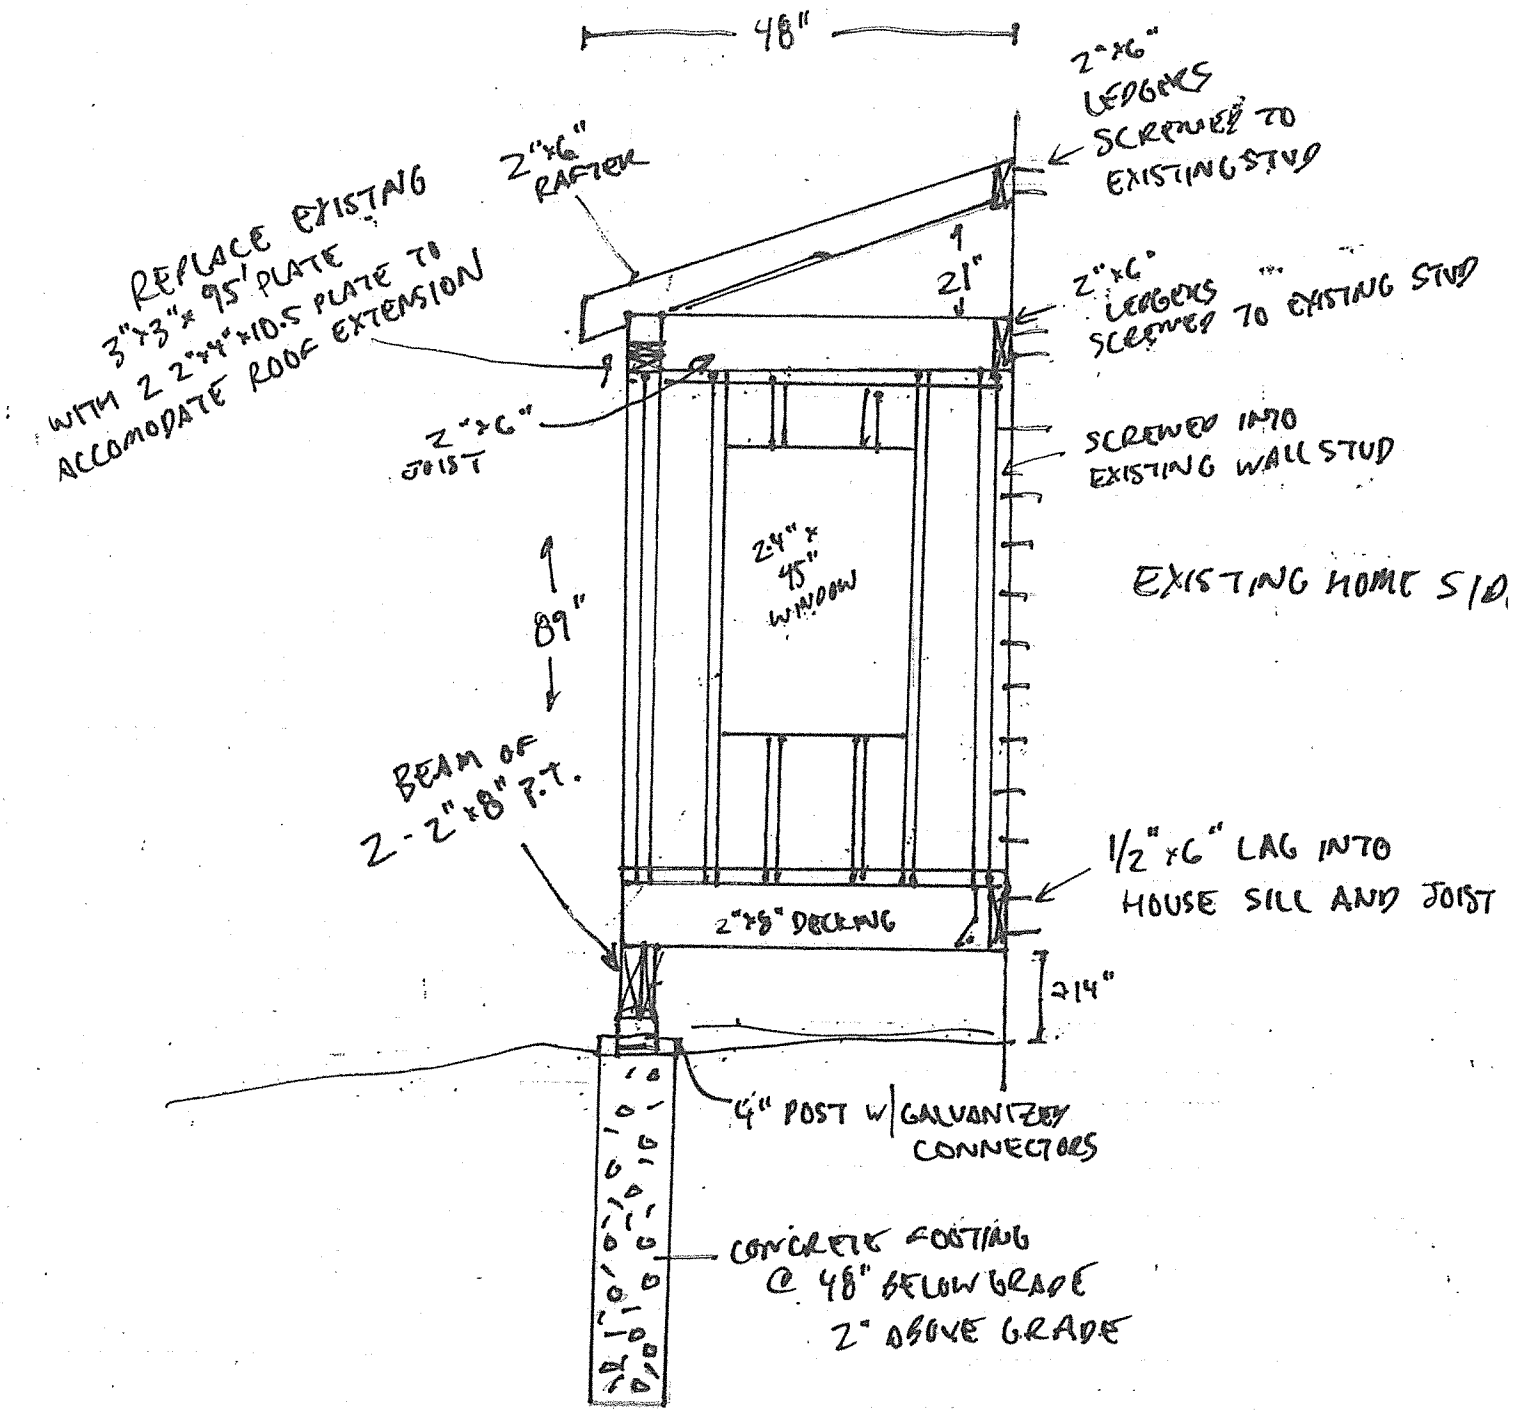 48"
2"x6"
LEDGERS
SCREWED TO
EXISTING STUD
2"x6"
RAFTER
REPLACE EXISTING
3"x3"x 95" PLATE
WITH 2 2"x4"x10.5 PLATE TO
ACCOMODATE ROOF EXTENSION
21"
2"x6"
LEDGERS
SCREWED TO EXISTING STUD
2"x6"
JOIST
SCREWED INTO
EXISTING WALL STUD
24" x
45"
WINDOW
89"
EXISTING HOME SID
BEAM OF
2 - 2"x8" P.T.
1/2"x6" LAG INTO
HOUSE SILL AND JOIST
2"x8" DECKING
14"
4" POST W/GALVANIZED
CONNECTORS
CONCRETE FOOTING
@ 48" BELOW GRADE
2" ABOVE GRADE